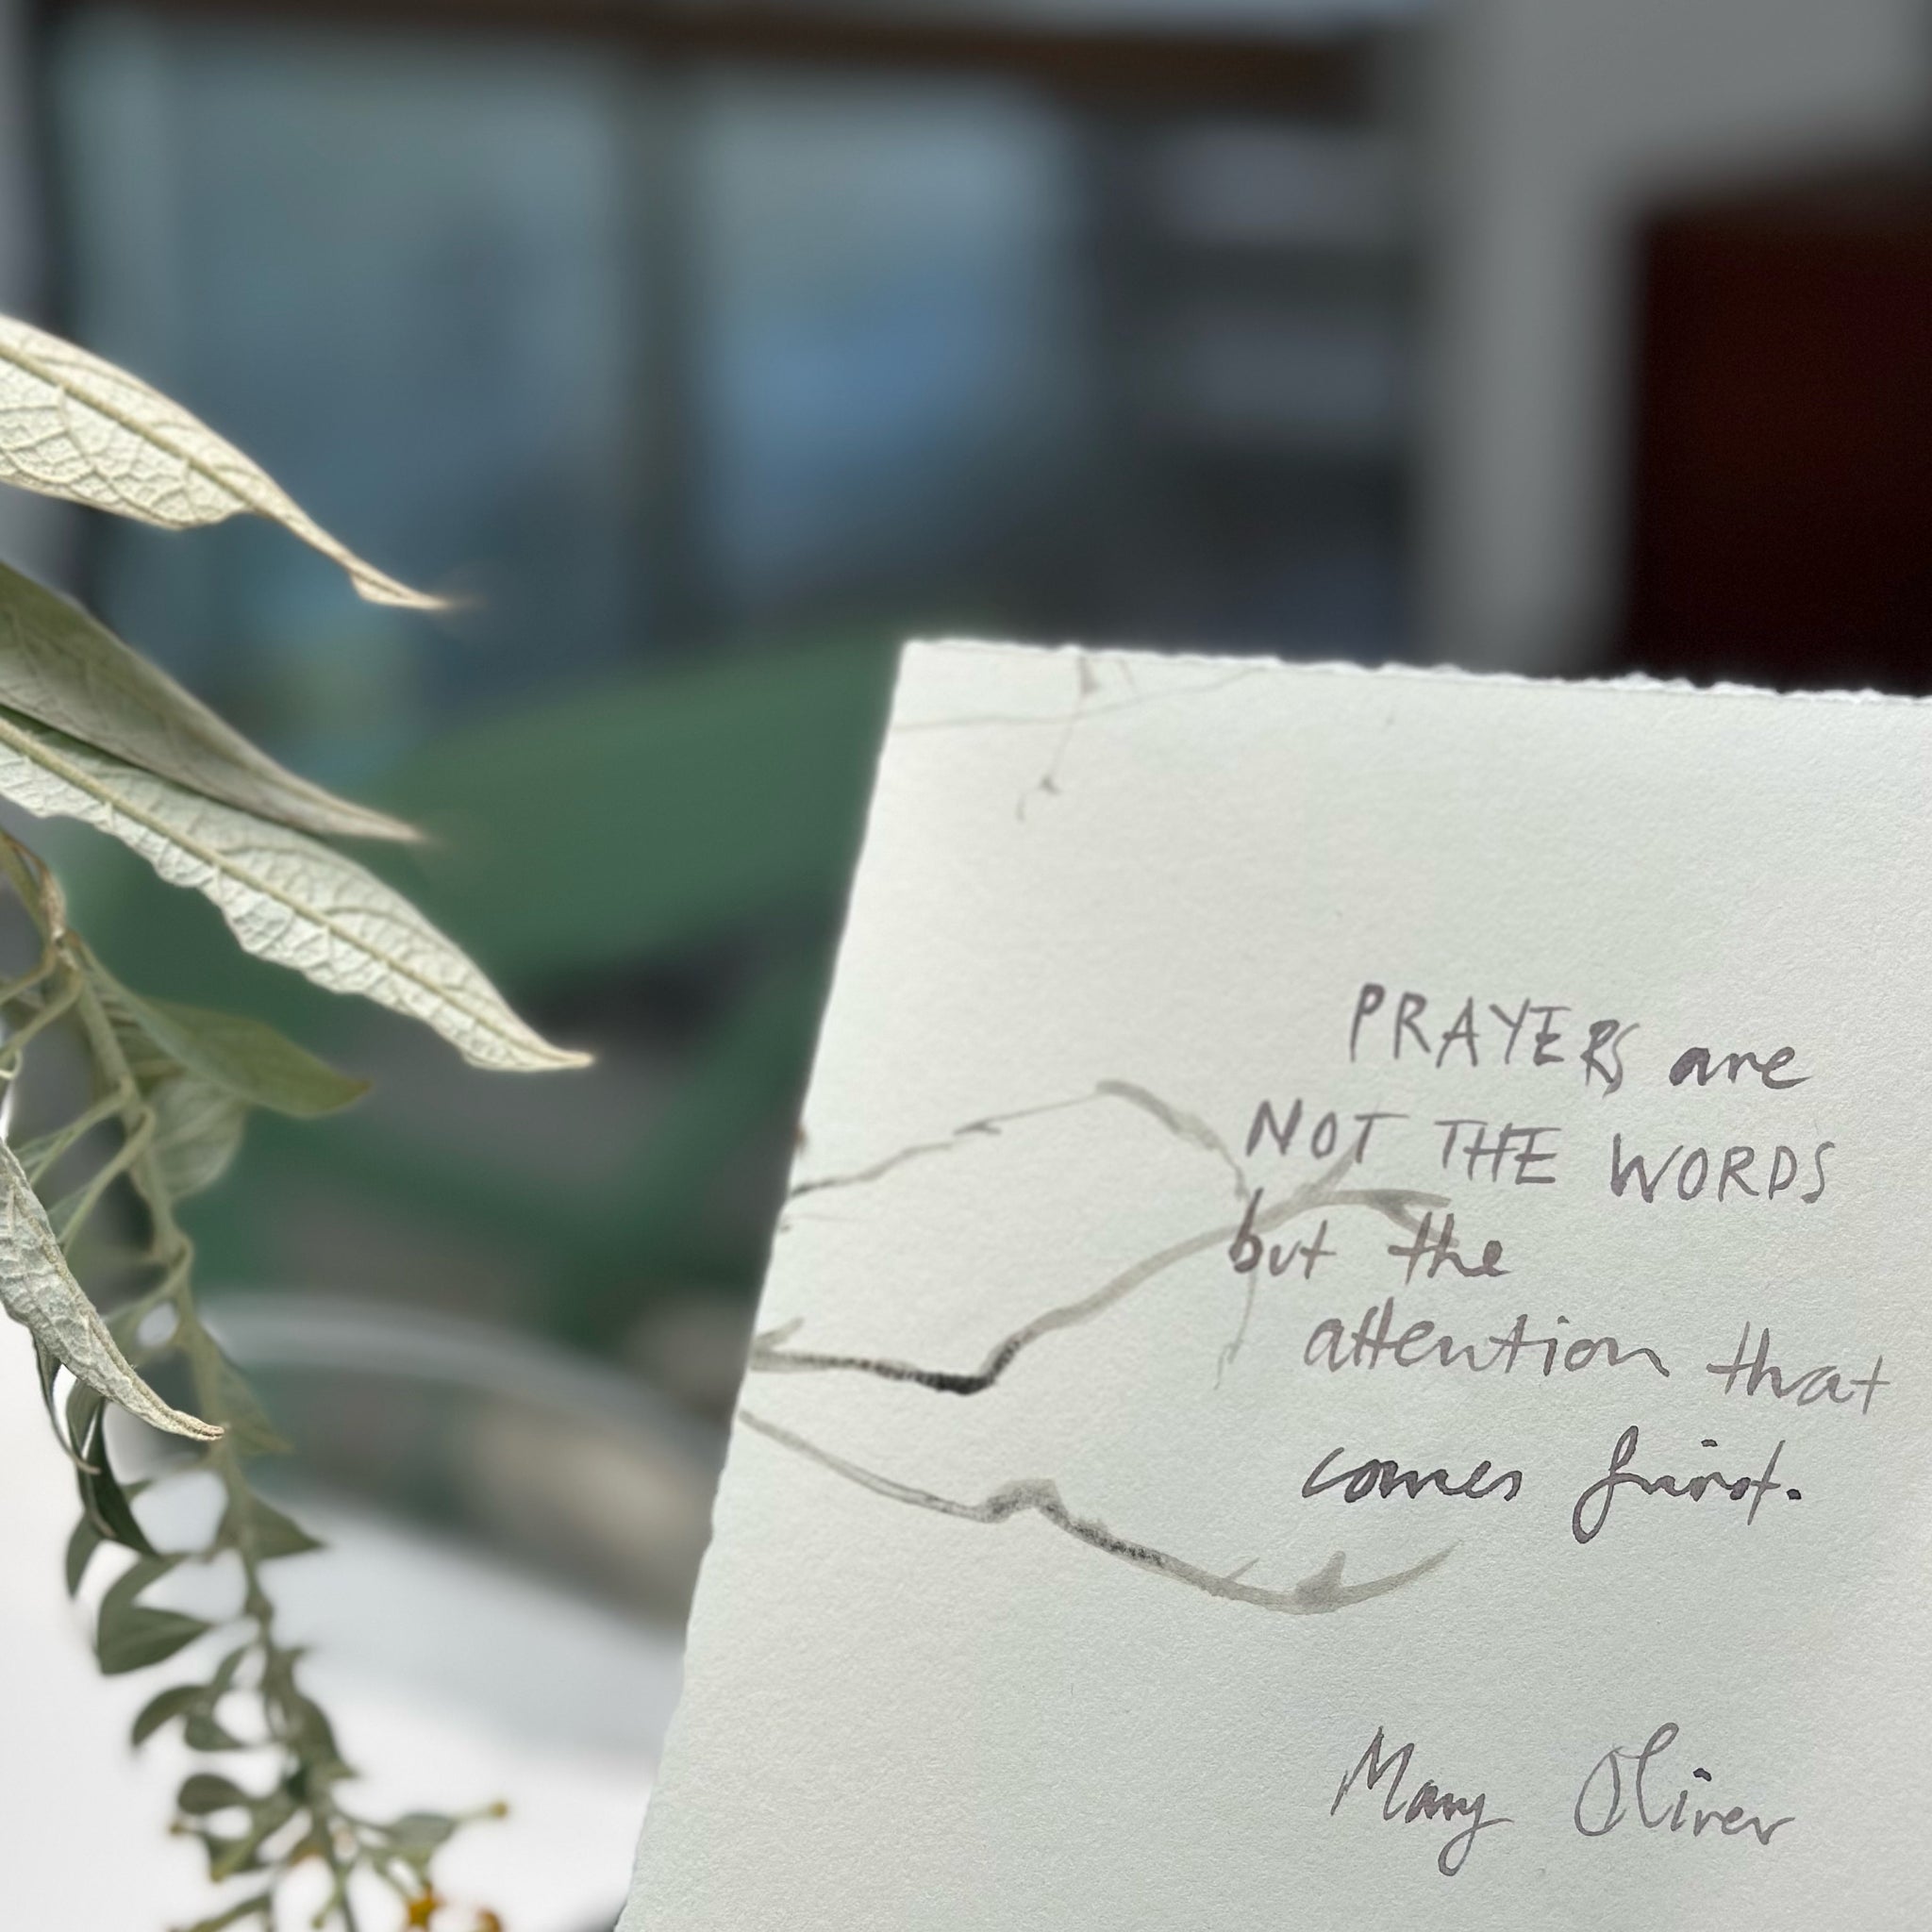 PRAYERS are
NOT THE WORDS
but the
attention that
comes first.
Mary Oliver